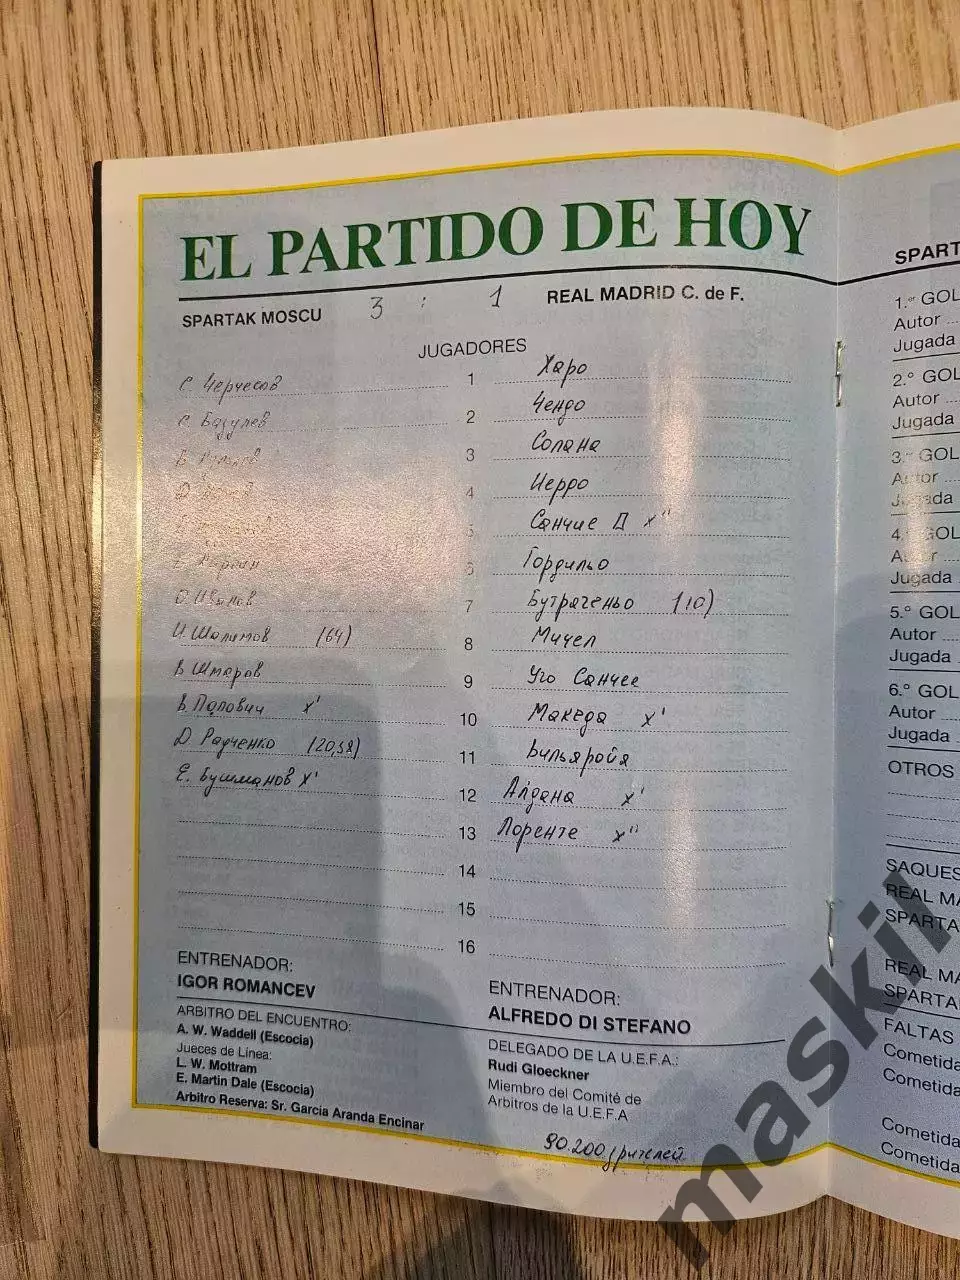 EL PARTIDO DE HOY
SPARTAK MOSCU 3 : 1 REAL MADRID C. de F.
JUGADORES
С. Черчесов 1 Харо
С. Базулев 2 Чендо
3 Солана
4 Иерро
Санчис П х"
6 Гордильо
7 Бутрагеньо (10)
И. Шалимов (64) 8 Мичел
В. Шмаров 9 Уго Санчес
В. Попович х' 10 Македа х'
Д. Радченко (20,58) 11 Вильяройя
Е. Бушманов х' 12 Алдана х'
13 Лоренте х"
14
15
16
ENTRENADOR:
IGOR ROMANCEV
ARBITRO DEL ENCUENTRO:
A. W. Waddell (Escocia)
Jueces de Línea:
L. W. Mottram
E. Martin Dale (Escocia)
Arbitro Reserva: Sr. García Aranda Encinar
ENTRENADOR:
ALFREDO DI STEFANO
DELEGADO DE LA U.E.F.A.:
Rudi Gloeckner
Miembro del Comité de
Arbitros de la U.E.F.A
90.200 зрителей
SPART
1.er GOL
Autor
Jugada
2.º GOL
Autor
Jugada
3.er GOL
Autor
Jugada
4. GOL
Jugada
5.º GOL
Autor
Jugada
6.º GOL
Autor
Jugada
OTROS
SAQUES
REAL MA
SPARTA
REAL MA
SPARTA
FALTAS
Cometida
Cometida
Cometida
Cometida
maskil